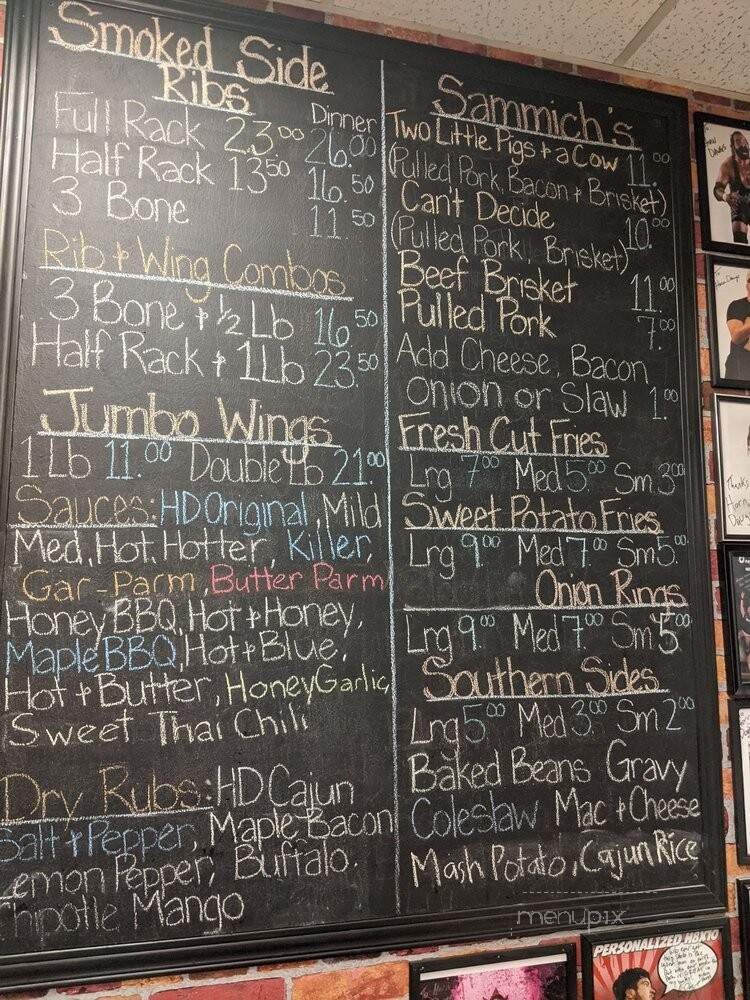 Smoked Side
Ribs
Dinner
Full Rack 23.00 26.00
Half Rack 13.50 16.50
3 Bone 11.50
Rib + Wing Combos
3 Bone + 1/2 Lb 16.50
Half Rack + 1 Lb 23.50
Jumbo Wings
1 Lb 11.00 Double Lb 21.00
Sauces: HD Original, Mild
Med, Hot, Hotter, Killer,
Gar-Parm, Butter Parm
Honey BBQ, Hot + Honey,
Maple BBQ, Hot + Blue,
Hot + Butter, Honey Garlic,
Sweet Thai Chili
Dry Rubs: HD Cajun
Salt + Pepper, Maple Bacon
Lemon Pepper, Buffalo.
Chipotle Mango
Sammich's
Two Little Pigs + a Cow 11.00
(Pulled Pork, Bacon + Brisket)
Can't Decide 10.00
(Pulled Pork, Brisket)
Beef Brisket 11.00
Pulled Pork 7.00
Add Cheese, Bacon
Onion or Slaw 1.00
Fresh Cut Fries
Lrg 7.00 Med 5.00 Sm. 3.00
Sweet Potato Fries
Lrg 9.00 Med 7.00 Sm 5.00
Onion Rings
Lrg 9.00 Med 7.00 Sm 5.00
Southern Sides
Lrg 5.00 Med 3.00 Sm 2.00
Baked Beans Gravy
Coleslaw Mac + Cheese
Mash Potato, Cajun Rice
menupix
PERSONALIZED HBK10
Thanks